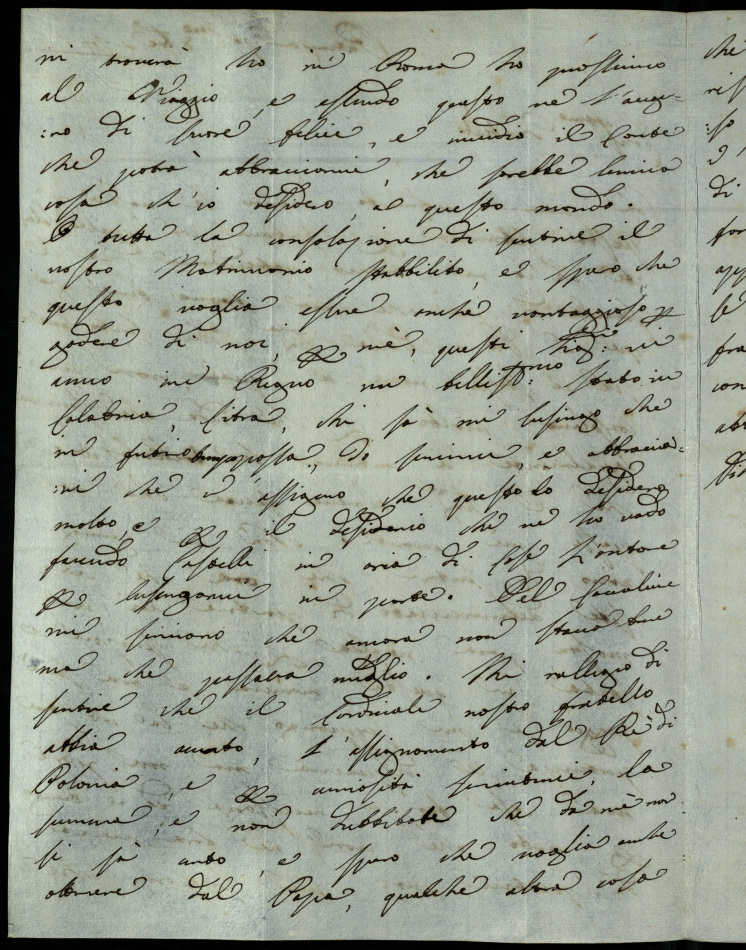 mi troverà ho in Roma ho prossimo
al Viaggio, e essendo questo ne l'augu=
:ro di Cuore felice, e invidio il Conte
che potrà abbracciarvi, che sarebbe l'unica
cosa ch'io desidero, al questo mondo.
O tutta la consolazione di sentire il
nostro Matrimonio stabbilito, e spero che
questo voglia essere anche vantaggioso p
godere di noi, p mè, questi
anno in Regno un bellissmo: stato in
Calabria, Citra, chi sà mi lusingo che
in futuro possa, di
:mi che v'assicuro che questo lo desidero
molto, e p il desiderio che ne ho vado
facendo Castelli in aria di Cose Lontane
p lusingarmi in parte. Del Cavaliere
mi scrivono che ancora non stava bene
ma che passava meglio. Mi rallegro di
sentire che il Cardinale nostro fratello
abbia avuto, l'assignamento dal Rè di
Polonia, e p curiosità scrivetemi, la
summa, e non dubbitate che da mè non
si sà anto, e spero che voglia anche
ottenere dal Papa, qualche altra cosa
che
di